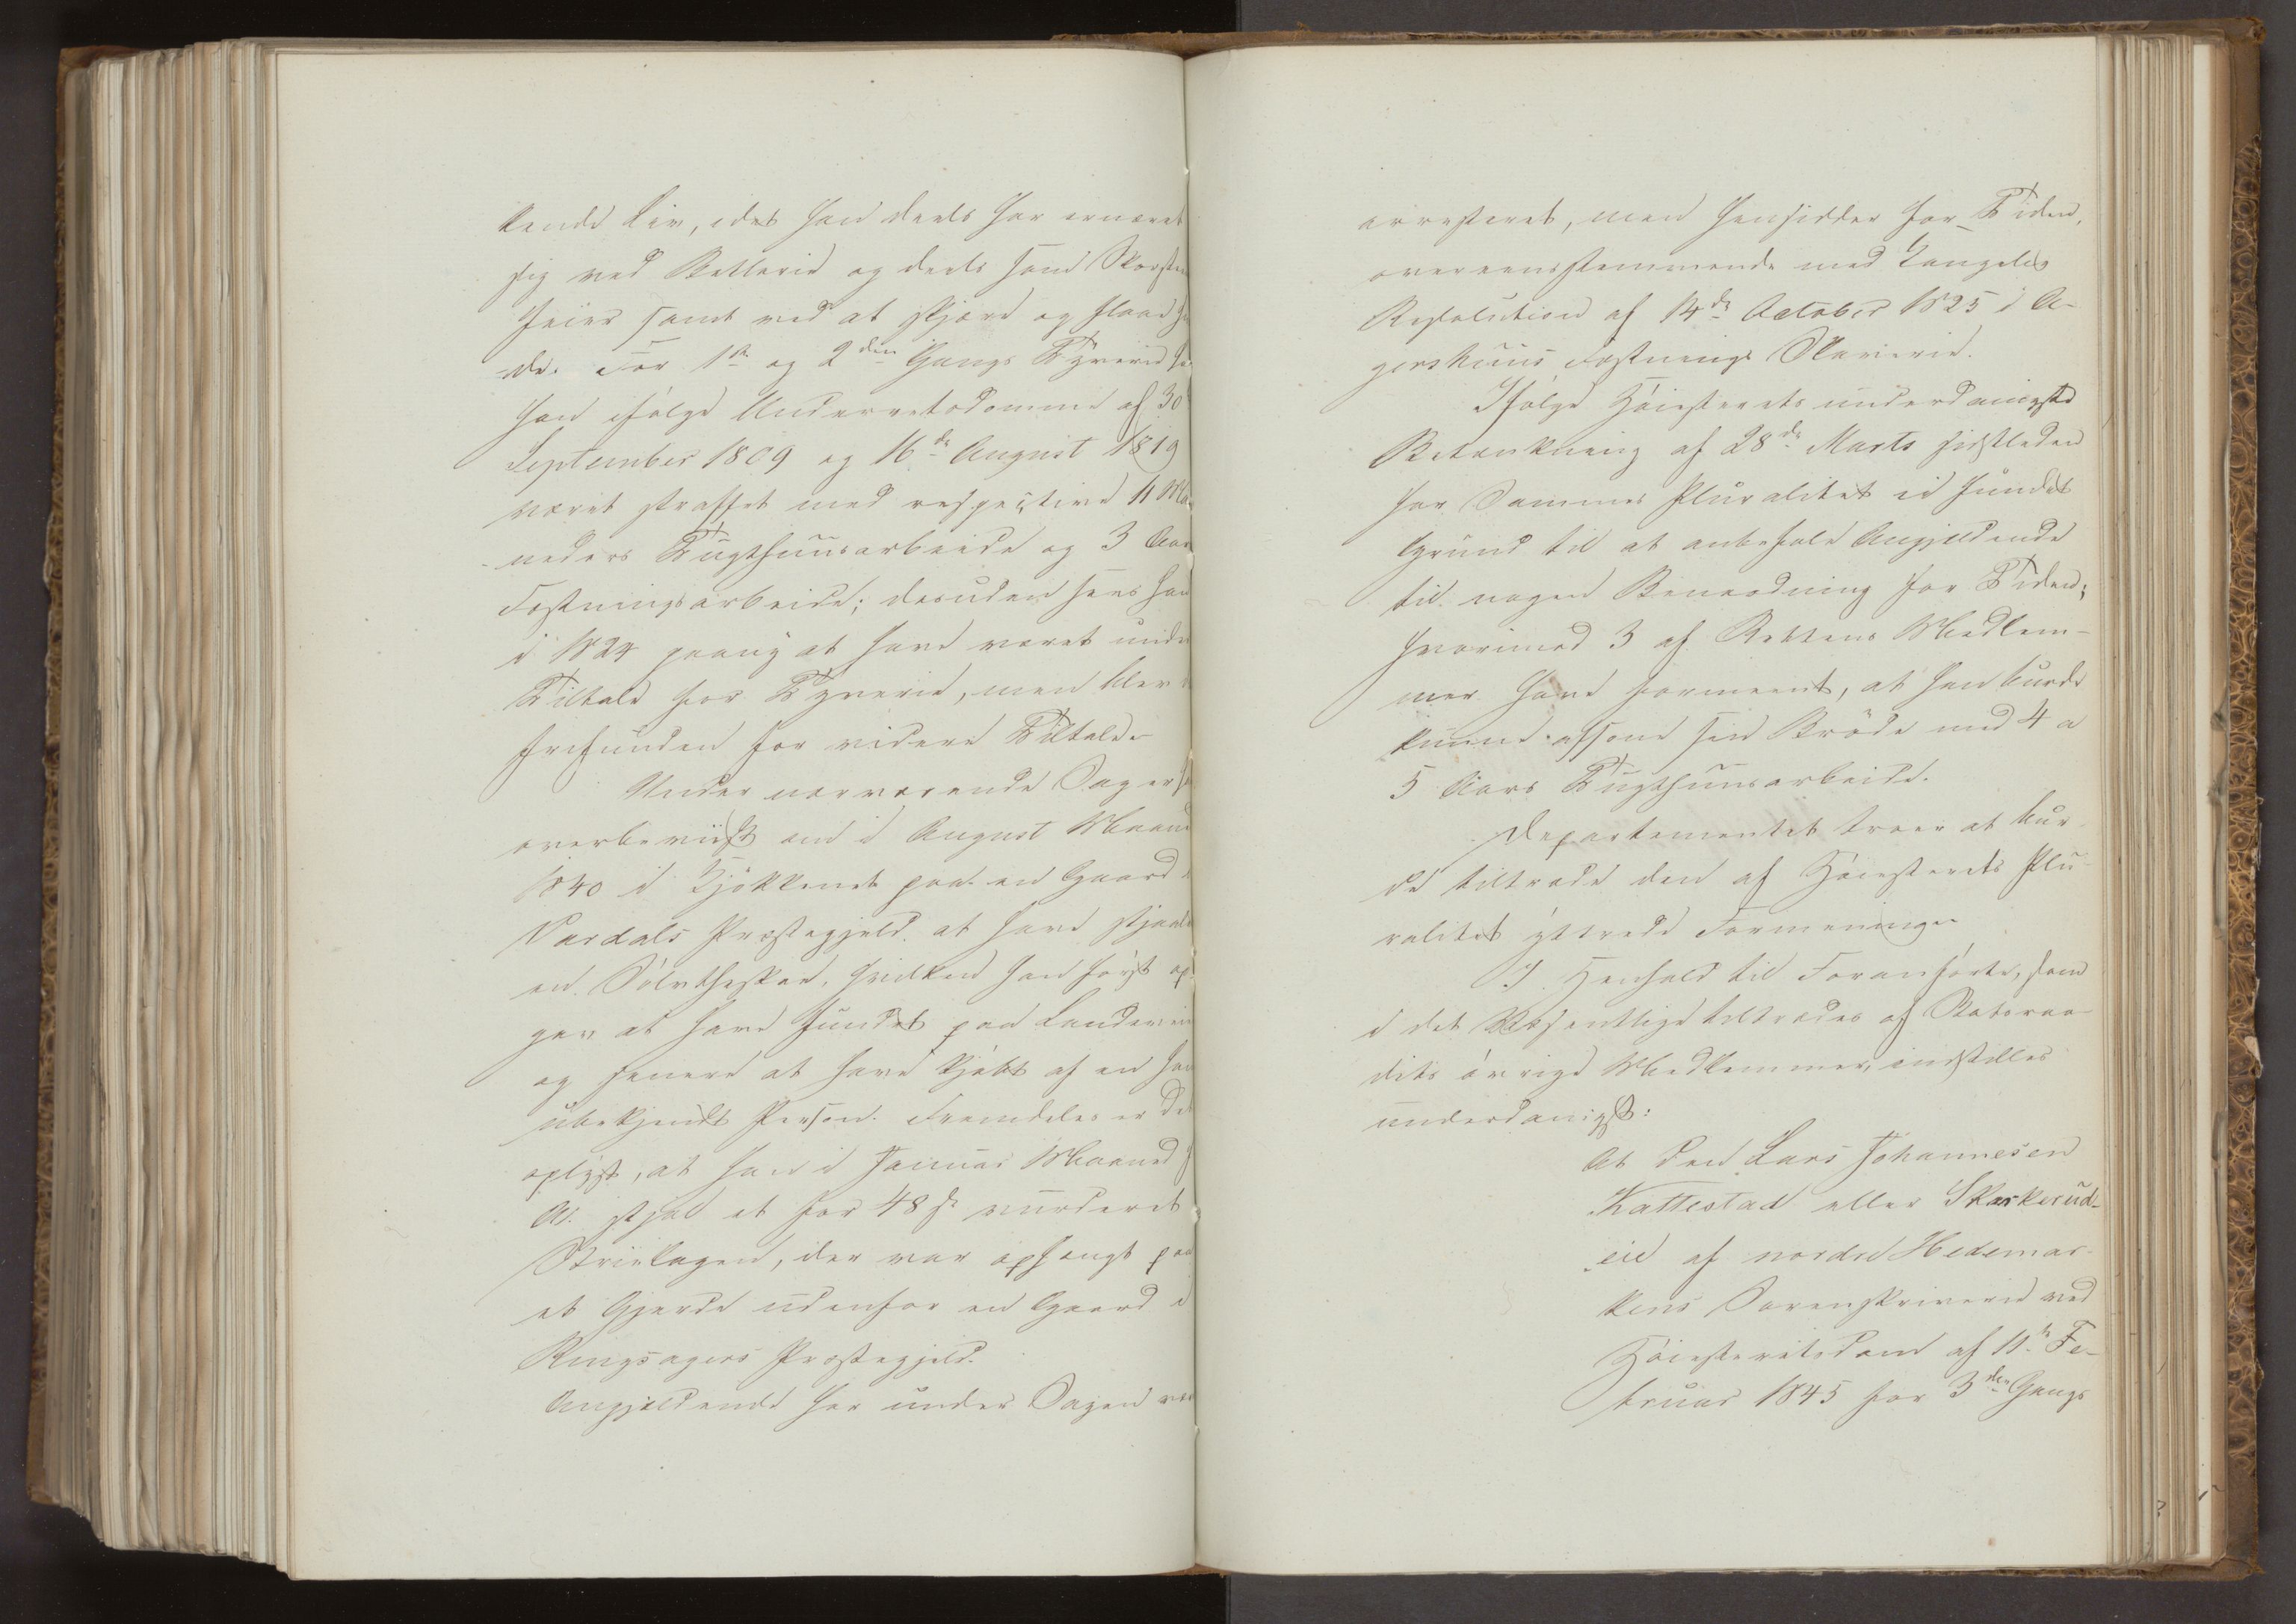 kende Liv, idet han deels har ernæret
sig ved Betlerie og deels som Skorsteens
feier samt ved at skjære og slaae
de. For 1ste og 2den Gangs Tyverie
han ifølge Underretsdomme af 30
September 1809 og 16de August 1819
været straffet med respective 4 Maa
neders Tugthuusarbeide og 3 Aars
Fæstningsarbeide; desuden sees han
i 1824 paany at have været under
Tiltale for Tyverie, men blev
frifunden for videre Tiltale.
Under nærværende Sag er han
overbeviist om i August Maaned
1840 i Kjøkkenet paa en Gaard i
Vardals Præstegjeld at have stjaalet
en Sølvtheskee, hvilken han først op
gav at have fundet paa Landeveien
og senere at have kjøbt af en ham
ubekjendt Person. Fremdeles er det
oplyst, at han i Januar Maaned
A. stjal et for 48 s vurderet
Striielagen, der var ophængt paa
et Gjerde udenfor en Gaard i
Ringsagers Præstegjeld.
Angjeldende har under Sagen været
arresteret, men hensidder for Tiden,
overeensstemmende med Kongelig
Resolution af 14de October 1825 i A-
gershuus Fæstnings Slaverie.
Ifølge Høiesterets underdanigste
Betænkning af 28de Marts sidstleden
har Sammes Pluralitet ei fundet
Grund til at anbefale Angjeldende
til nogen Benaadning for Tiden;
hvorimod 3 af Rettens Medlem-
mer have formeent, at han burde
kunne afsone sin Brøde med 4 a
5 Aars Tugthuusarbeide.
Departementet troer at bur
de tiltræde den af Høiesterets Plu-
ralitet yttrede Formening.
I Henhold til Foranførte, som
i det Væsentlige tiltrædes af Statsraa-
dets øvrige Medlemmer, indstilles
underdanigst:
At den Lars Johannesen
Kattestad eller Skarkerud-
eie af nordre Hedemar-
kens Sorenskriverie ved
Høiesteretsdom af 11te Fe-
bruar 1845 for 3die Gangs